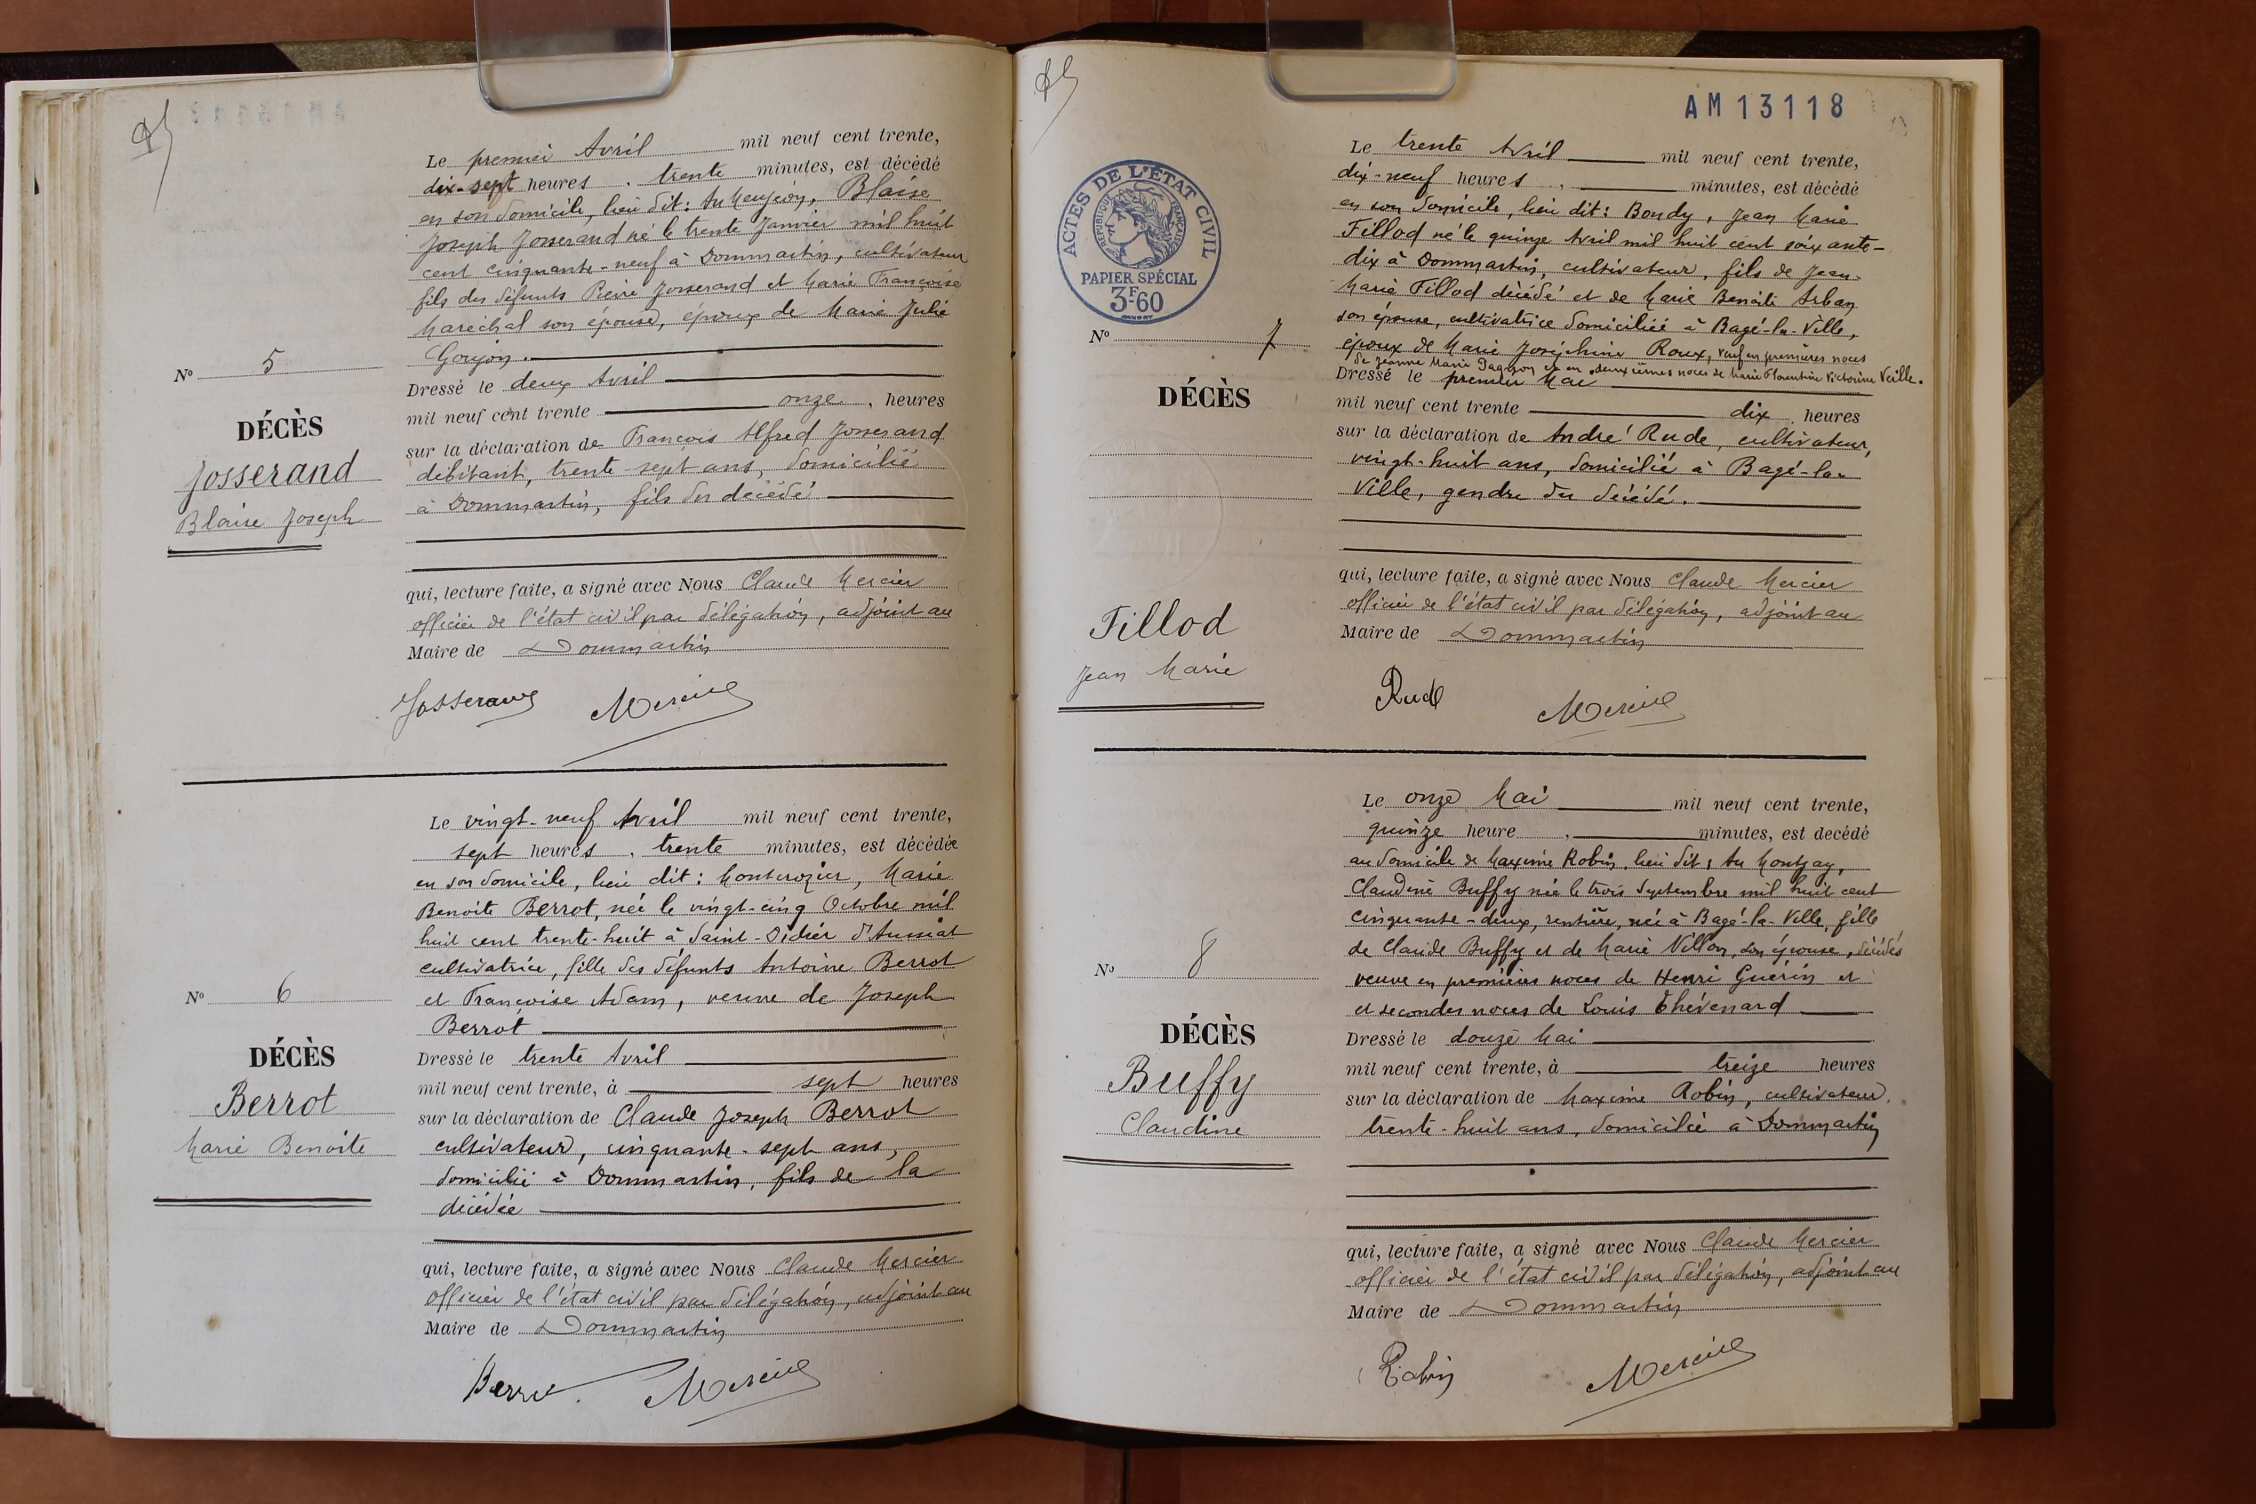 Le premier Avril mil neuf cent trente,
dix-sept heures, trente minutes, est décédé
en son domicile, lieu dit: Au Blaise
Joseph Josserand né le trente Janvier mil huit
cent cinquante-neuf à Dommartin, cultivateur
fils des défunts Pierre Josserand et Marie Françoise
Maréchal son épouse, époux de Marie Julie
Goujon.
Nº 5
DÉCÈS
Josserand
Blaise Joseph
Dressé le deux Avril
mil neuf cent trente onze, heures
sur la déclaration de François Alfred Josserand
débitant, trente-sept ans, domicilié
à Dommartin, fils du décédé
qui, lecture faite, a signé avec Nous Claude Mercier
officier de l'état civil par délégation, adjoint au
Maire de Dommartin
Josserand Mercier
Le vingt-neuf Avril mil neuf cent trente,
sept heures, trente minutes, est décédée
en son domicile, lieu dit: Montcrozier, Marie
Benoite Berrot, née le vingt-cinq Octobre mil
huit cent trente-huit à Saint-Didier d'Aussiat
cultivatrice, fille des défunts Antoine Berrot
et Françoise Adam, veuve de Joseph
Berrot
Nº 6
DÉCÈS
Berrot
Marie Benoite
Dressé le trente Avril
mil neuf cent trente, à sept heures
sur la déclaration de Claude Joseph Berrot
cultivateur, cinquante-sept ans,
domicilié à Dommartin, fils de la
décédée
qui, lecture faite, a signé avec Nous Claude Mercier
officier de l'état civil par délégation, adjoint au
Maire de Dommartin
Berrot. Mercier
AM 13118
ACTES DE L'ÉTAT CIVIL
RÉPUBLIQUE FRANÇAISE
PAPIER SPÉCIAL
3F60
Le trente Avril mil neuf cent trente,
dix-neuf heures, minutes, est décédé
en son domicile, lieu dit: Bondy, Jean Marie
Fillod né le quinze Avril mil huit cent soixante-
dix à Dommartin, cultivateur, fils de Jean-
Marie Fillod décédé et de Marie Benoite Arban
son épouse, cultivatrice domiciliée à Bagé-la-Ville,
époux de Marie Joséphine Roux, veuf en premières noces
de Jeanne Marie Pagnon et en deuxièmes noces de Marie Florentine Victorine Veille.
Nº 7
DÉCÈS
Fillod
Jean Marie
Dressé le premier Mai
mil neuf cent trente dix heures
sur la déclaration de André Rude, cultivateur,
vingt-huit ans, domicilié à Bagé-la-
Ville, gendre du décédé.
qui, lecture faite, a signé avec Nous Claude Mercier
officier de l'état civil par délégation, adjoint au
Maire de Dommartin
Rude Mercier
Le onze Mai mil neuf cent trente,
quinze heure, minutes, est decédé
au domicile de Maxime Robin, lieu dit: Au Montzay,
Claudine Buffy née le trois Septembre mil huit cent
cinquante-deux, rentière, née à Bagé-la-Ville, fille
de Claude Buffy et de Marie Villon, son épouse, décédés
veuve en premières noces de Henri Guérin et
et secondes noces de Louis Thévenard
Nº 8
DÉCÈS
Buffy
Claudine
Dressé le douze Mai
mil neuf cent trente, à treize heures
sur la déclaration de Maxime Robin, cultivateur,
trente-huit ans, domicilié à Dommartin
qui, lecture faite, a signé avec Nous Claude Mercier
officier de l'état civil par délégation, adjoint au
Maire de Dommartin
Robin Mercier